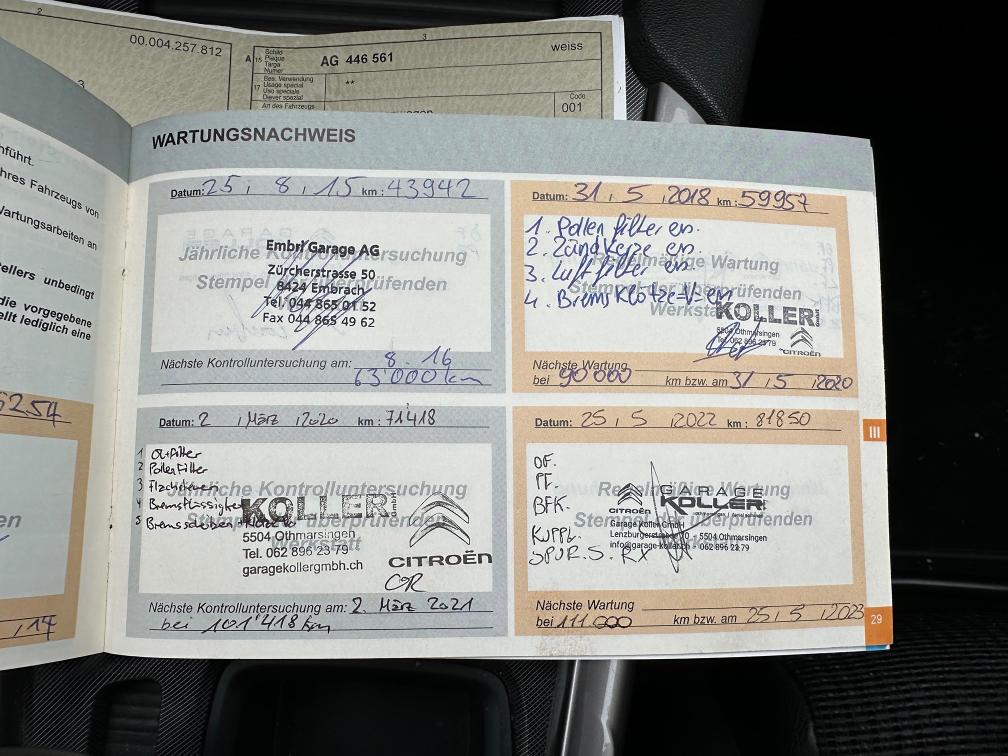 2
00.004.257.812
3
A
15
Schild
Plaque
Targa
Numer
AG 446 561
weiss
3
17
Bes. Verwendung
Usage spécial
Uso speciale
Diever spezial
**
Art des Fahrzeugs
Code
001
führt.
hres Fahrzeugs von
Wartungsarbeiten an
tellers unbedingt
die vorgegebene
ellt lediglich eine
5254
, 17
WARTUNGSNACHWEIS
Datum: 25 , 8 , 15 km : 43942
Jährliche Kontrolluntersuchung
Stempel der überprüfenden
Embri Garage AG
Zürcherstrasse 50
8424 Embrach
Tel. 044 865 01 52
Fax 044 865 49 62
Nächste Kontrolluntersuchung am: 8 . 16
63'000 km
Datum: 31 , 5 , 2018 km : 59957
1. Pollenfilter en.
2. Zündkerze en.
3. Luftfilter en.
4. Bremsklötze-V- en
Regelmäßige Wartung
Stempel der überprüfenden
Werkstatt
KOLLER GmbH
5504 Othmarsingen
Tel. 062 896 23 79
CITROËN
Nächste Wartung
bei 90'000 km bzw. am 31 , 5 , 2020
Datum: 2 , März , 2020 km : 71418
1 Ölfilter
2 Pollenfilter
4 Bremsflüssigkeit
Jährliche Kontrolluntersuchung
Stempel der überprüfenden
Werkstatt
KOLLER GmbH
5504 Othmarsingen
Tel. 062 896 23 79
garagekollergmbh.ch
CITROËN
Nächste Kontrolluntersuchung am: 2. März 2021
bei 101'418 km
Datum: 25 , 5 , 2022 km : 81850
ÖF.
PF.
BFK.
KUPPL.
SPUR.S. RX
Regelmäßige Wartung
Stempel der überprüfenden
GARAGE
KOLLER GmbH
CITROËN
Garage Koller GmbH
Lenzburgerstrasse 10 - 5504 Othmarsingen
info@garage-koller.ch - 062 896 23 79
Nächste Wartung
bei 111.000 km bzw. am 25 , 5 , 2023
III
29